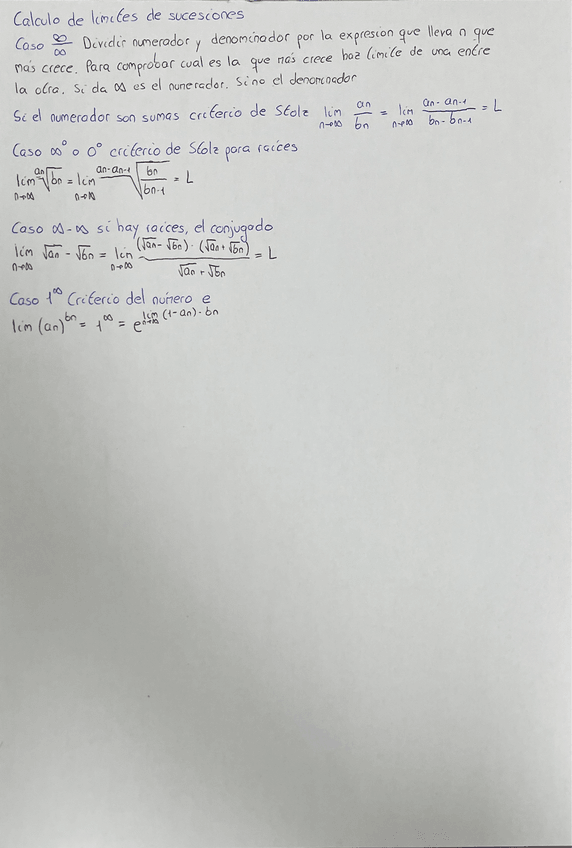 Calculo de limites de sucesiones
Caso ∞/∞ Dividir numerador y denominador por la expresion que lleva n que
más crece. Para comprobar cual es la que más crece haz limite de una entre
la otra. Si da ∞ es el numerador. Sino el denominador
Si el numerador son sumas criterio de Stolz lim n→∞ an/bn = lim n→∞ (an - an-1)/(bn - bn-1) = L
Caso ∞° o 0° criterio de Stolz para raices
lim n→∞ an√bn = lim n→∞ an-an-1√(bn/bn-1) = L
Caso ∞-∞ si hay raices, el conjugado
lim n→∞ √an - √bn = lim n→∞ (√an - √bn) · (√an + √bn) / √an + √bn = L
Caso 1^∞ Criterio del número e
lim (an)^bn = 1^∞ = e^lim n→∞ (1-an)·bn